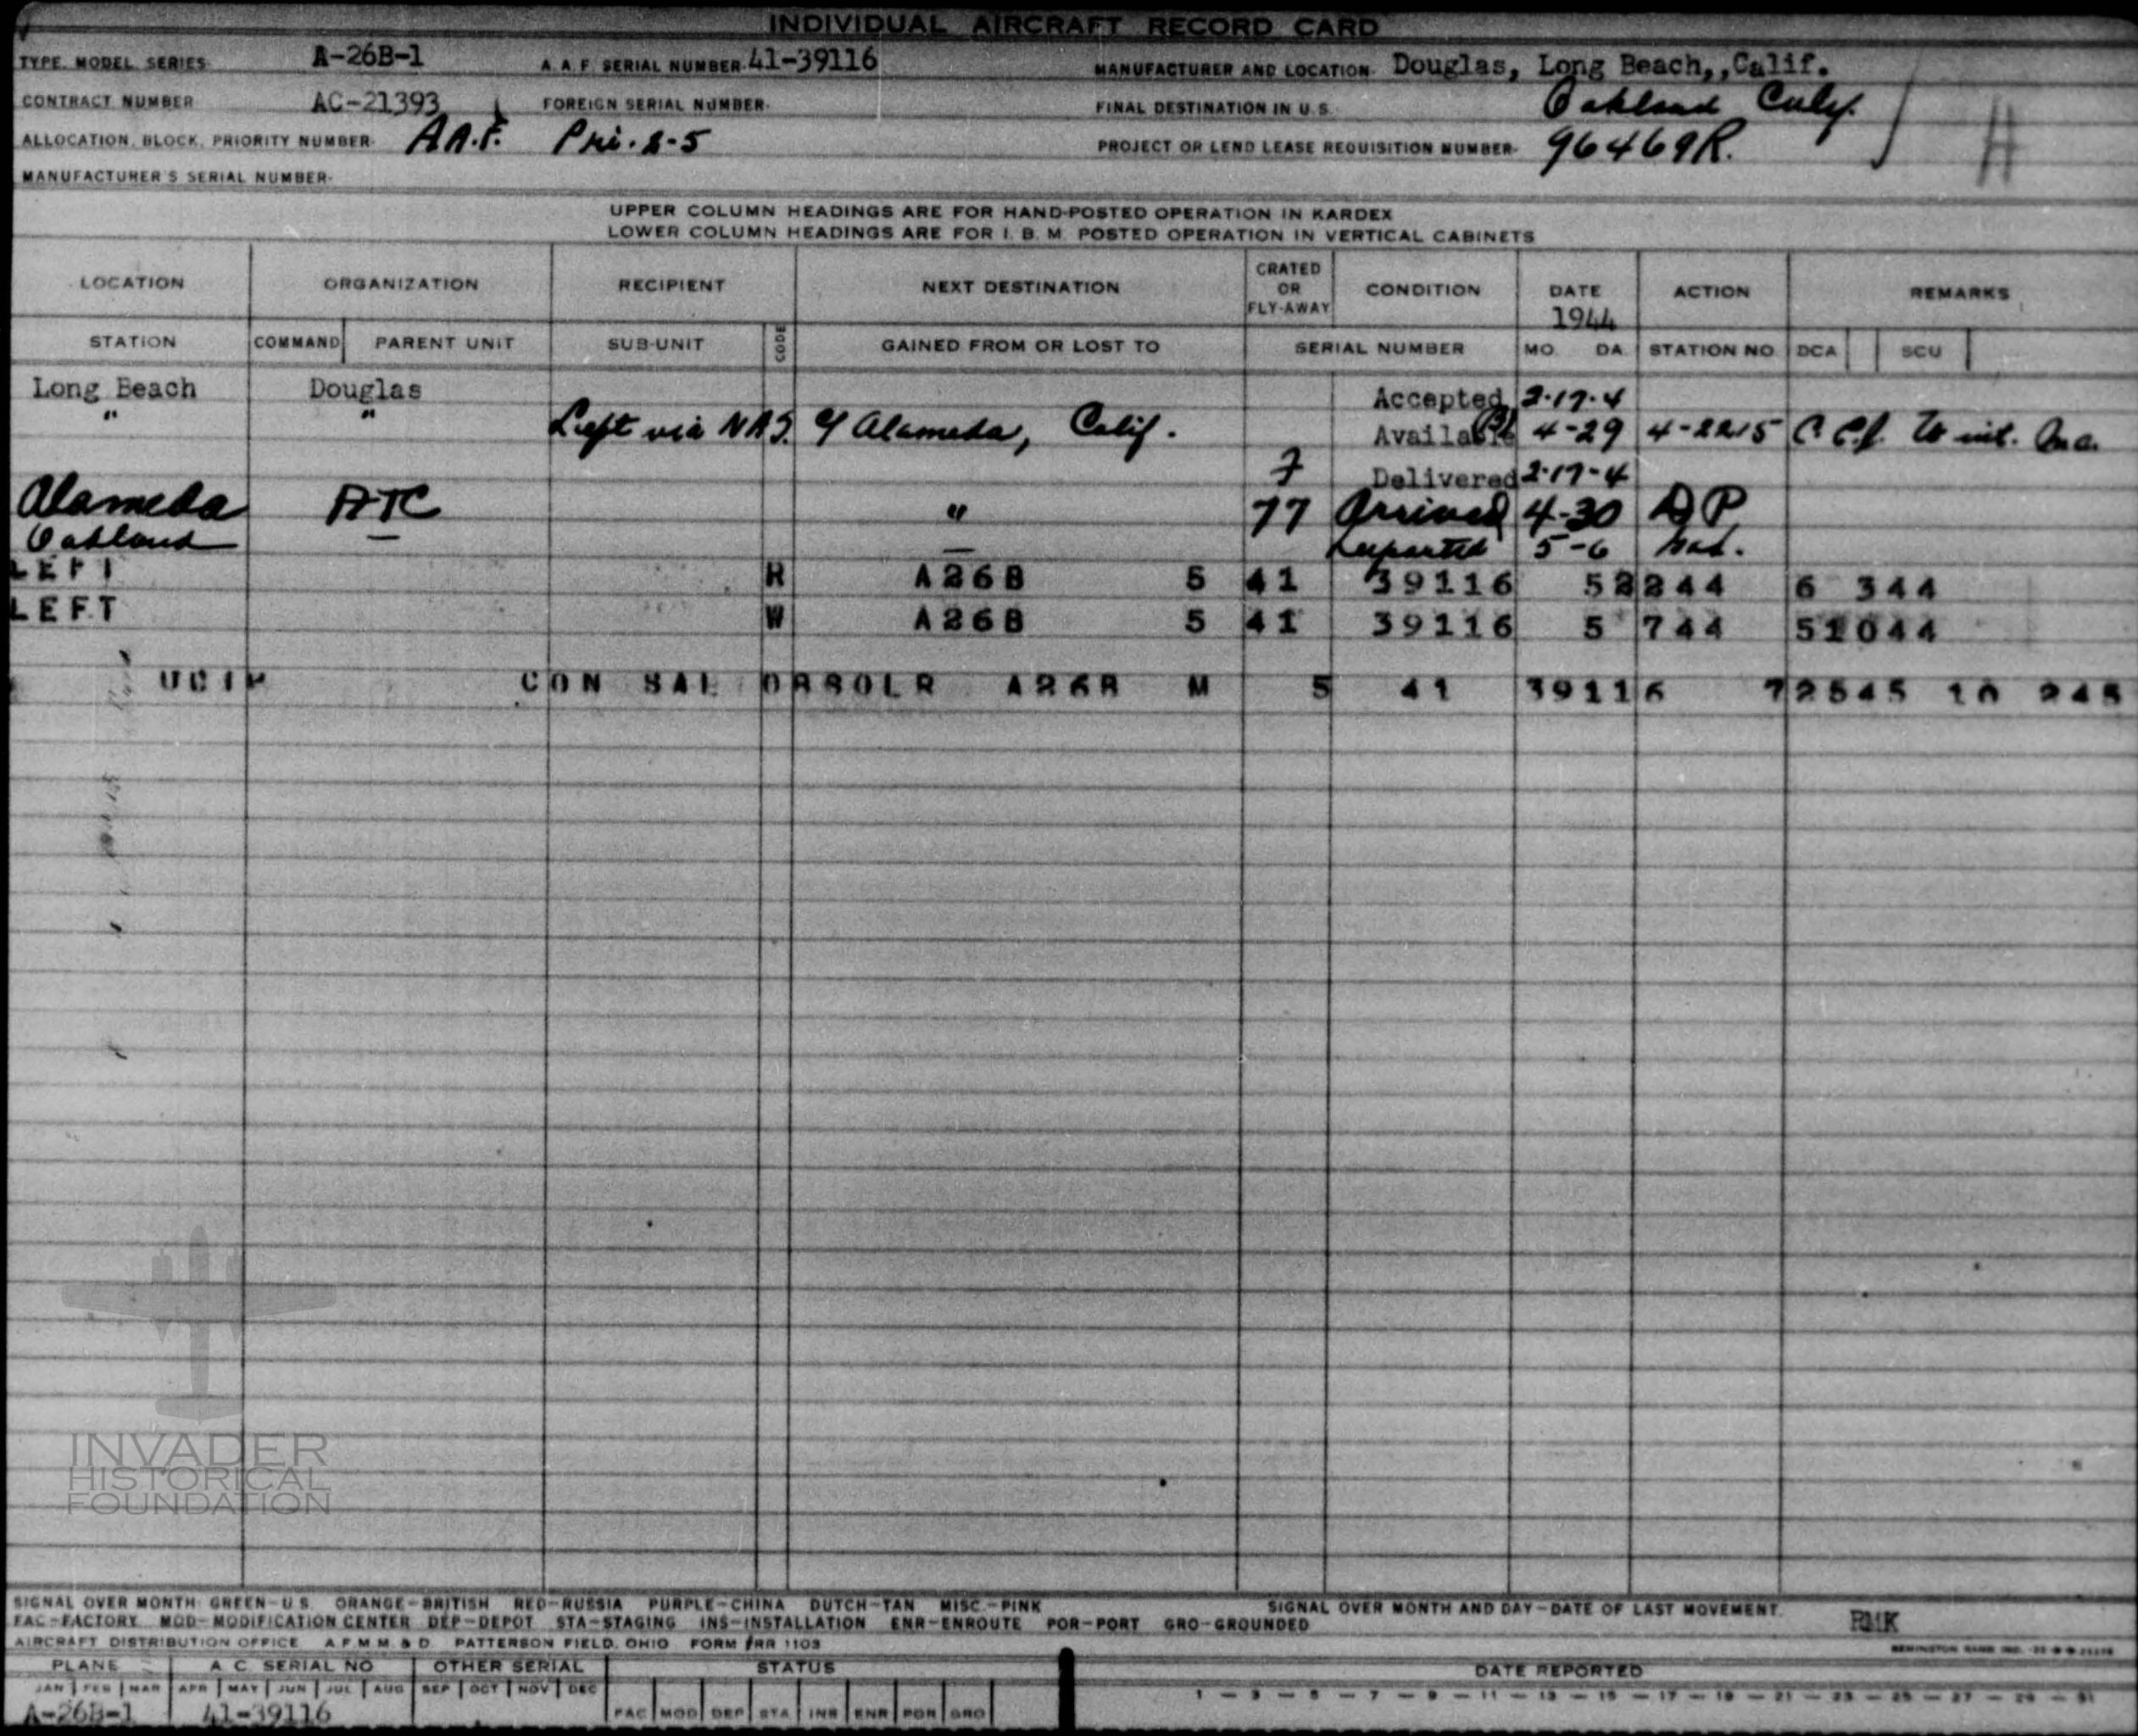 INDIVIDUAL AIRCRAFT RECORD CARD
TYPE. MODEL. SERIES. A-26B-1 A.A.F. SERIAL NUMBER. 41-39116 MANUFACTURER AND LOCATION. Douglas, Long Beach,,Calif.
CONTRACT NUMBER AC-21393 FOREIGN SERIAL NUMBER. FINAL DESTINATION IN U.S. Oakland Calif.
ALLOCATION. BLOCK. PRIORITY NUMBER. AA.F. Pri. 2-5 PROJECT OR LEND LEASE REQUISITION NUMBER. 96469R. H
MANUFACTURER'S SERIAL NUMBER.
UPPER COLUMN HEADINGS ARE FOR HAND-POSTED OPERATION IN KARDEX
LOWER COLUMN HEADINGS ARE FOR I. B. M. POSTED OPERATION IN VERTICAL CABINETS
LOCATION ORGANIZATION RECIPIENT NEXT DESTINATION CRATED OR FLY-AWAY CONDITION DATE 1944 ACTION REMARKS
STATION COMMAND PARENT UNIT SUB-UNIT CODE GAINED FROM OR LOST TO SERIAL NUMBER MO. DA. STATION NO. DCA SCU
Long Beach Douglas Accepted 2-17-4
" " Left via NAS. Alameda, Calif. Available 4-29 4-2215
7 Delivered 2-17-4
Alameda ATC " 77 Arrived 4-30 DP
Oakland — — Departed 5-6
LEFT R A26B 5 41 39116 52244 6 344
LEFT W A26B 5 41 39116 5 744 51044
CON SAL A26B M 5 41 39116 72545 10 245
INVADER
HISTORICAL
FOUNDATION
SIGNAL OVER MONTH GREEN-U.S. ORANGE-BRITISH RED-RUSSIA PURPLE-CHINA DUTCH-TAN MISC.-PINK SIGNAL OVER MONTH AND DAY-DATE OF LAST MOVEMENT.
FAC-FACTORY MOD-MODIFICATION CENTER DEP-DEPOT STA-STAGING INS-INSTALLATION ENR-ENROUTE POR-PORT GRO-GROUNDED RMK
AIRCRAFT DISTRIBUTION OFFICE A.F.M.M.&D. PATTERSON FIELD, OHIO FORM #RR 1103 REMINGTON RAND INC.
PLANE A C SERIAL NO OTHER SERIAL STATUS DATE REPORTED
JAN FEB MAR APR MAY JUN JUL AUG SEP OCT NOV DEC 1 — 3 — 5 — 7 — 9 — 11 — 13 — 15 — 17 — 19 — 21 — 23 — 25 — 27 — 29 — 31
A-26B-1 41-39116 FAC MOD DEP STA INS ENR POR GRO